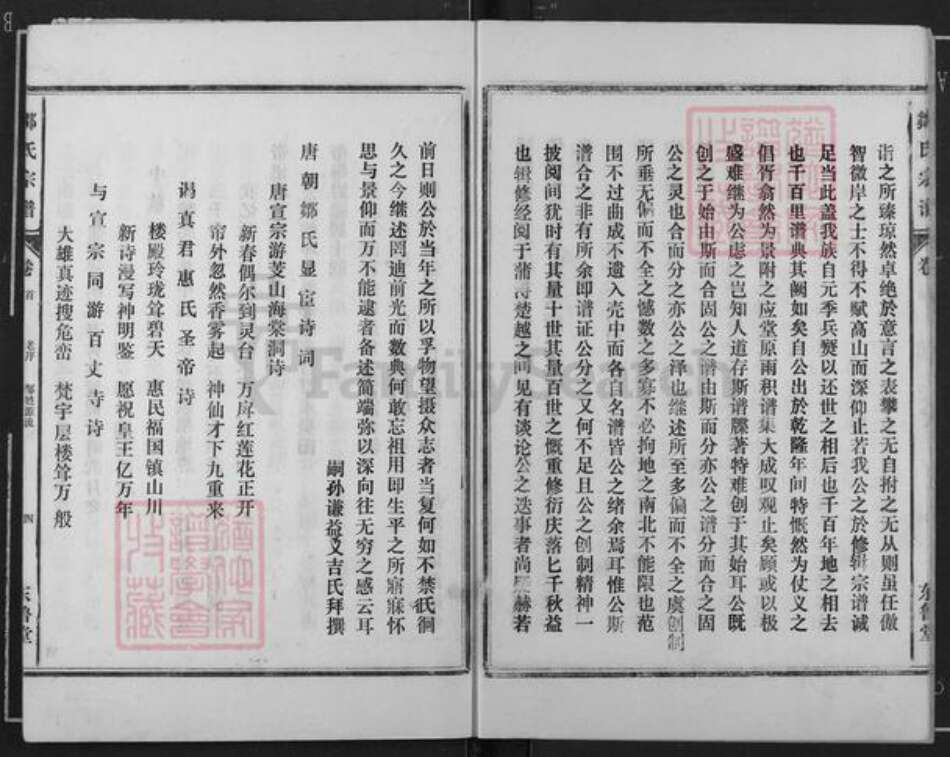 诣之所臻琼然卓绝於意言之表攀之无自拊之无从则虽任傲
智微岸之士不得不赋高山而深仰止若我公之於修辑宗谱诚
足当此盖我族自元季兵燹以还世之相后也千百年地之相去
也千百里谱典其阙如矣自公出於乾隆年间特慨然为仗义之
倡胥翕然为景附之应堂原雨积谱集大成叹观止矣顾或以极
盛难继为公虑之岂知人道存斯谱牒著特难创于其始耳公既
创之于始由斯而合固公之谱由斯而分亦公之谱分而合之固
公之灵也合而分之亦公之泽也继述所至多偏而不全之虞创制
所垂无偏而不全之憾数之多寡不必拘地之南北不能限也范
围不过曲成不遗入壳中而各自名谱皆公之绪余焉耳惟公斯
谱合之非有所余即谱证公分之又何不足且公之创制精神一
披阅间犹时有其量十世其量百世之慨重修衍庆落匕千秋益
也辑修经阅于蒲得楚越之间见有谈论公之迭事者尚赫若
前日则公於当年之所以孚物望摄众志者当复何如不禁氏徊
久之今继述罔迪前光而数典何敢忘祖用即生平之所寤寐怀
思与景仰而万不能逮者备述简端弥以深向往无穷之感云耳
嗣孙谦益义吉氏拜撰
唐朝鄒氏显宦诗词
唐宣宗游芰山海棠洞诗
新春偶尔到灵台 万席红莲花正开
帘外忽然香雾起 神仙才下九重来
谒真君惠氏圣帝诗
楼殿玲珑耸碧天 惠民福国镇山川
新诗漫写神明鉴 愿祝皇王亿万年
与宣宗同游百丈寺诗
大雄真迹搜危峦 梵宇层楼耸万般
氏宗谱
卷首
四
东鲁堂